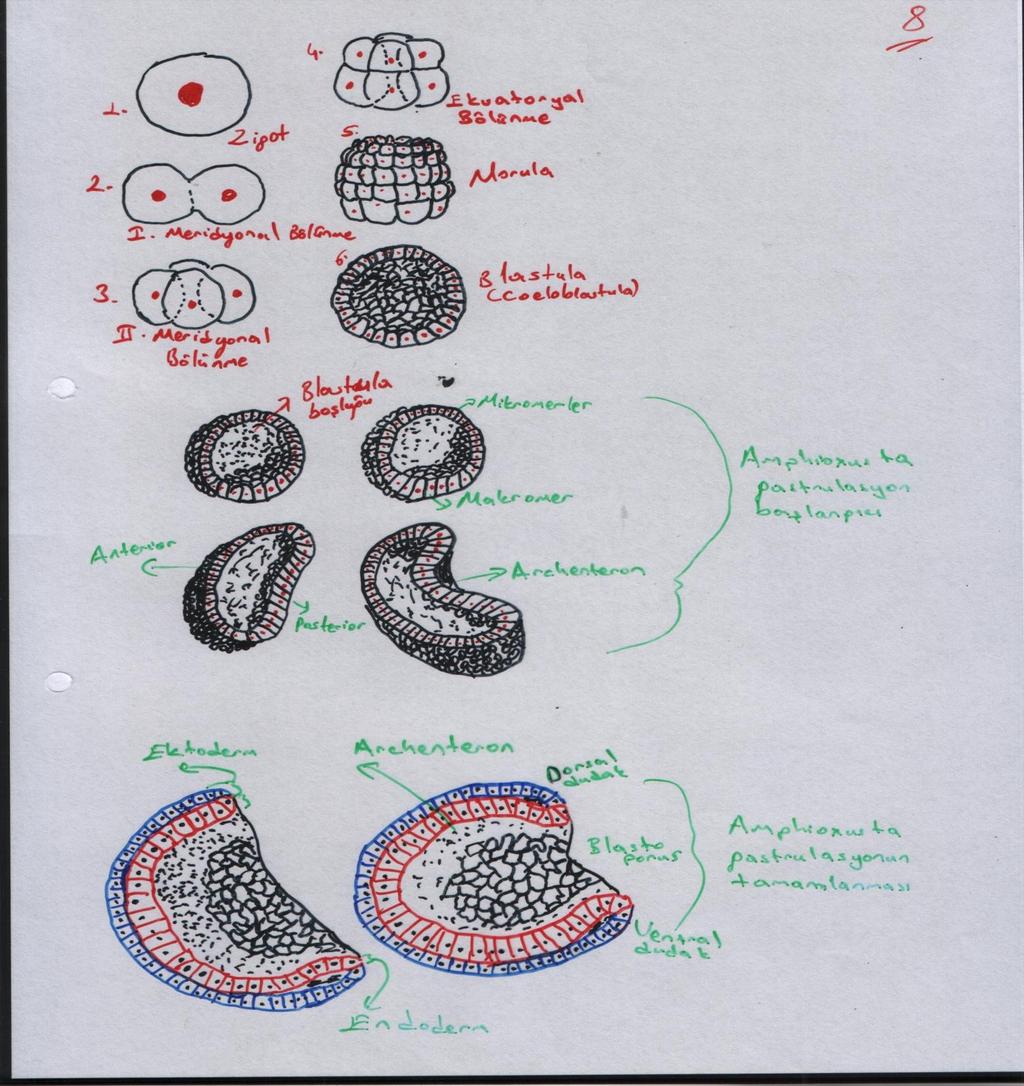 8
1.
Zigot
2.
I. Meridyonal Bölünme
3.
II. Meridyonal
Bölünme
4.
Ekvatoryal
Bölünme
5.
Morula
6.
Blastula
(Coeloblastula)
Blastula
boşluğu
Mikromerler
Makromer
Anterior
Posterior
Archenteron
Amphioxus ta
gastrulasyon
başlangıcı
Ektoderm
Archenteron
Dorsal
dudak
Blasto
porus
Ventral
dudak
Endoderm
Amphioxus ta
gastrulasyonun
tamamlanması